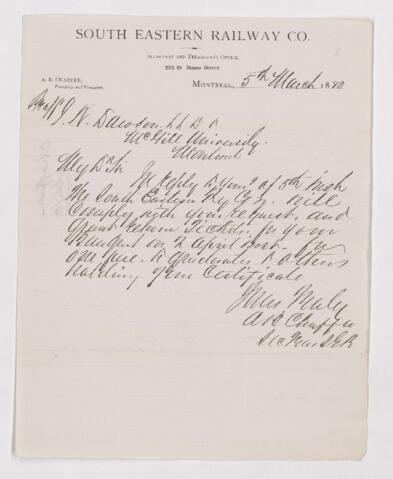 SOUTH EASTERN RAILWAY CO.
SECRETARY AND TREASURER'S OFFICE,
202 St James Street
A. B. CHAFFEE,
Secretary and Treasurer.
MONTREAL, 5th March 1880
J. W. Dawson LL D
McGill University.
Montreal
My Dr Sir
In reply to yours of 5th inst
The South Eastern Ry Co. will
comply with your request and
grant return Tickets for your
Banquet on 2 April for
one fare. to graduates & others
holding your Certificate
Yours Truly
A B Chaffee
Sec Treas S E R